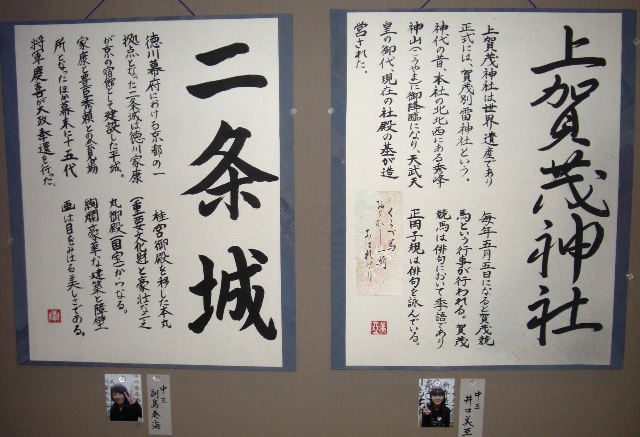 上賀茂神社
上賀茂神社は世界遺産であり
正式には、賀茂別雷神社という。
神代の昔、本社の北北西にある秀峰
神山(こうやま)に御降臨になり、天武天
皇の御代、現在の社殿の基が造
営された。
毎年五月五日になると賀茂競
馬という行事が行われる。賀茂
競馬は俳句において季語であり
正岡子規は俳句を詠んでいる。
くらべ馬
おくれし一騎
あはれなり
中三
井口美亜
二条城
徳川幕府における京都の一
拠点となった二条城は徳川家康
が京の宿館として建設した平城。
家康と豊臣秀頼との会見場
所となったほか幕末に十五代
将軍慶喜が大政奉還を行った。
桂宮御殿を移した本丸
(重要文化財)と豪壮な二之
丸御殿(国宝)からなる。
絢爛豪華な建築と障壁
画は目をみはる美しさである。
中三
副島奏海